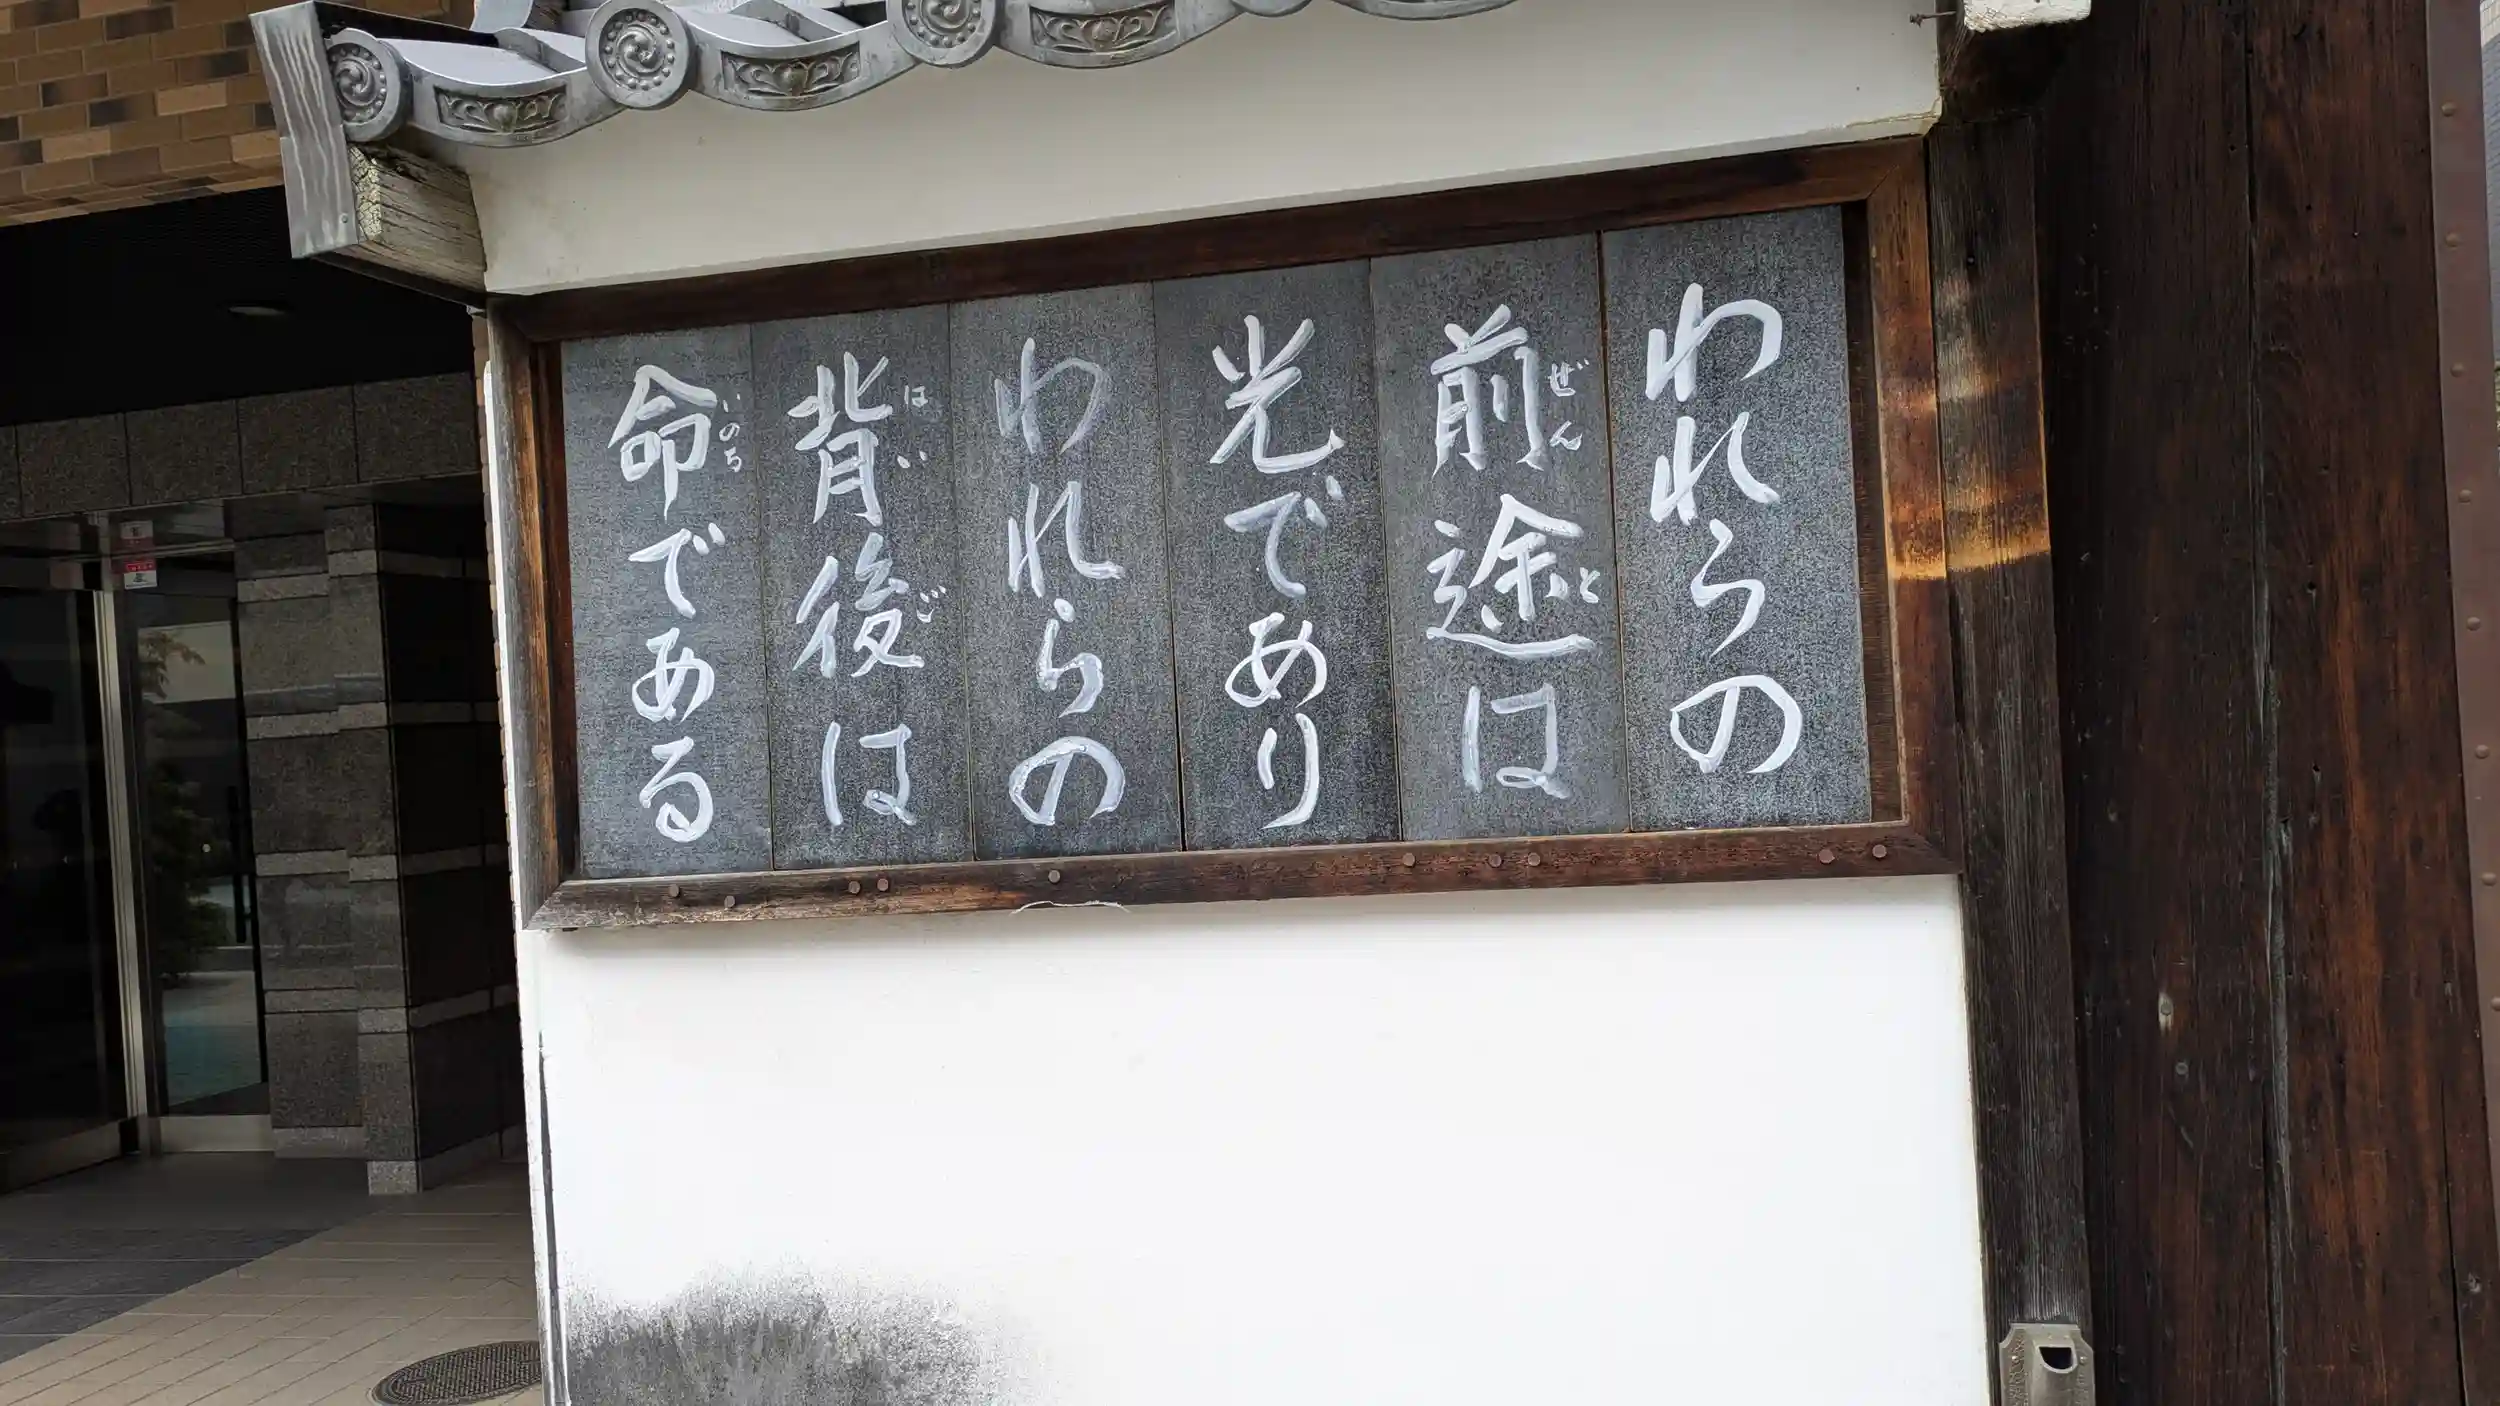 われらの
前途は
ぜんと
光であり
われらの
背後は
はいご
命である
いのち